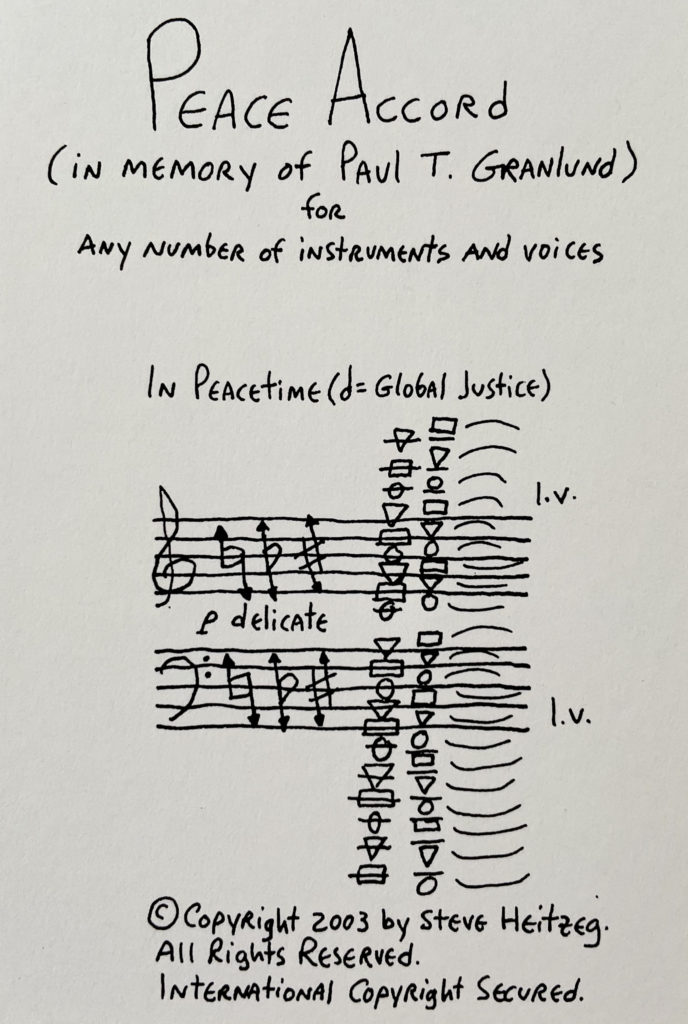 PEACE ACCORD
(IN MEMORY of PAUL T. GRANLUND)
for
ANY NUMBER of INSTRUMENTS AND VOICES
IN PEACETIME (d= GLOBAL JUSTICE)
l.v.
p delicate
l.v.
© COPYRIGHT 2003 by STEVE HEITZEG.
All RIGHTS RESERVED.
INTERNATIONAL COPYRIGHT SECURED.